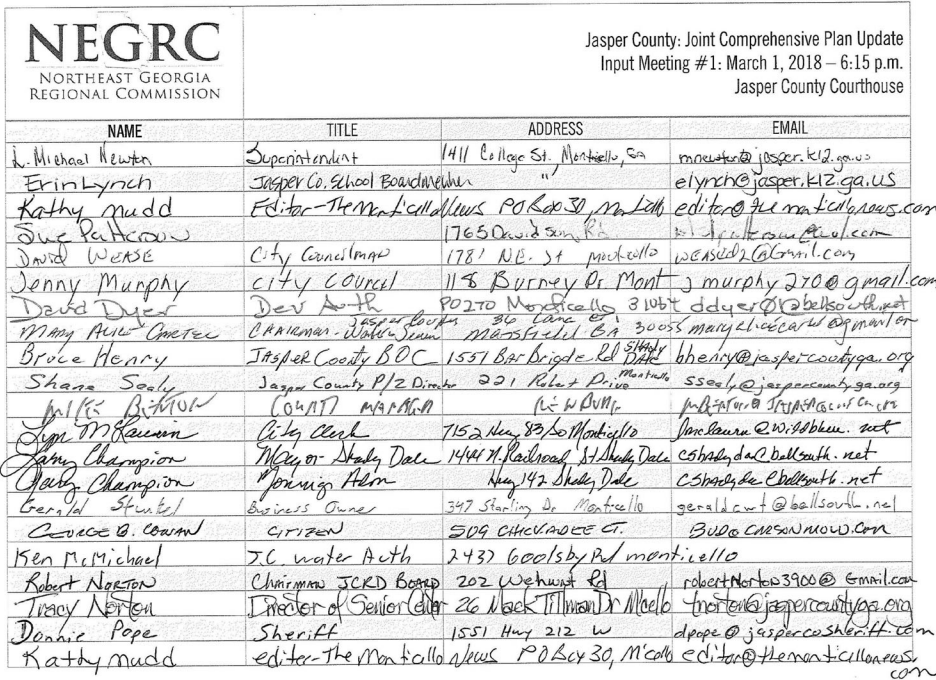 NEGRC
NORTHEAST GEORGIA
REGIONAL COMMISSION
Jasper County: Joint Comprehensive Plan Update
Input Meeting #1: March 1, 2018 – 6:15 p.m.
Jasper County Courthouse
NAME TITLE ADDRESS EMAIL
L. Michael Newton Superintendent 1411 College St, Monticello, Ga mnewton@jasper.k12.ga.us
Erin Lynch Jasper Co. School Boardmember " elynch@jasper.k12.ga.us
Kathy Mudd Editor-The Monticello News PO Box 30, Monticello editor@themonticellonews.com
Sue Patterson 1765 Davidson Rd.
David Wease City Councilman 178 N.E. St Monticello
Jenny Murphy City Council 118 Burney Dr Mont jmurphy270@gmail.com
David Dyer Dev Auth PO 270 Monticello 31064
Chairman - Jasper County Water 36 Lane Mansfield GA 30055
Bruce Henry Jasper County BOC 1551 Bar Brigde Rd Shady Dale bhenry@jaspercountyga.org
Shane Sealy Jasper County P/Z Director 221 Robert Drive Monticello ssealy@jaspercountyga.org
Mike Benton County Manager Newborn
City Clerk 7152 Hwy 83 So Monticello
Larry Champion Mayor - Shady Dale 1444 N. Railroad St Shady Dale cshadydal@bellsouth.net
Champion Hwy 142 Shady Dale cshadydal@bellsouth.net
Gerald Business Owner 397 Starling Dr Monticello geraldcwt@bellsouth.net
George B. Cowan Citizen 509 Chickadee Ct. Bud@carsonmow.com
Ken McMichael J.C. water Auth 2437 Goolsby Rd monticello
Robert Norton Chairman JCRD Board 202 Wehunt Rd robertnorton3900@Gmail.com
Tracy Norton Director of Senior Center 26 Mack Tillman Dr M'cello tnorton@jaspercountyga.org
Donnie Pope Sheriff 1551 Hwy 212 W dpope@jaspercosheriff.com
Kathy Mudd editor-The Monticello News PO Box 30, M'cello editor@themonticellonews.com